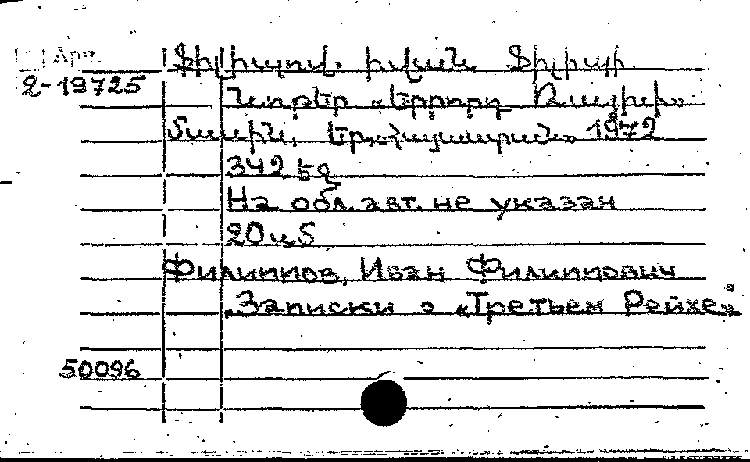 Арм.
2-19725
Ֆիլիպով, Իվան Ֆիլիպի
Նոթեր «Երրորդ Ռայխի»
մասին, Եր., «Հայաստան» 1972
342 էջ
На обл. авт. не указан
20 ц 5
Филиппов, Иван Филиппович
„Записки о «Третьем Рейхе»“
50096